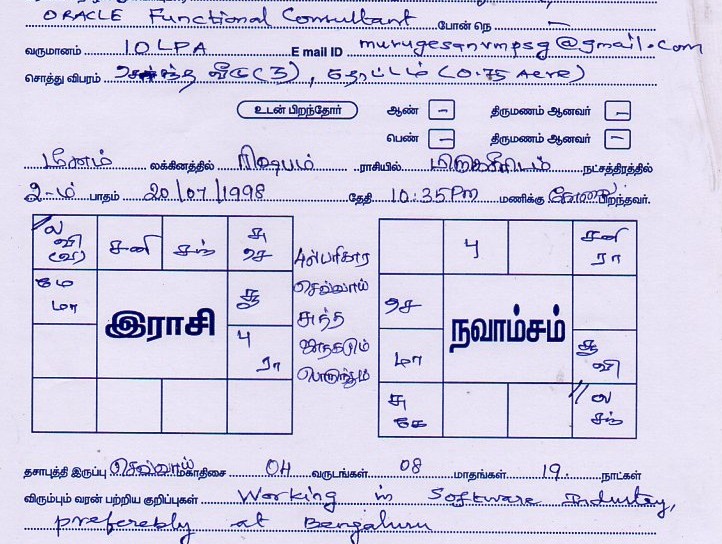 ORACLE Functional Consultant போன் நெ —
வருமானம் 10 LPA E mail ID murugesanvmpsg@gmail.com
சொத்து விபரம் சொந்த வீடு (3), தோட்டம் (0.75 Acre)
உடன் பிறந்தோர் ஆண் — திருமணம் ஆனவர் —
பெண் — திருமணம் ஆனவர் —
மீனம் லக்கினத்தில் ரிஷபம் ராசியில் மிருகசீரிடம் நட்சத்திரத்தில்
2-ம் பாதம் 20/07/1998 தேதி 10:35 PM மணிக்கு கோவை பிறந்தவர்.
ல வி (வ) சனி சந் சு செ
கே மா சூ
இராசி
பு ரா
பரிகார
செவ்வாய்
சுத்த
ஜாதகமும்
பொருந்தும்
பு சனி ரா
செ
நவாம்சம்
மா சூ வி
சு கே ல சந்
தசாபுத்தி இருப்பு செவ்வாய் மகாதிசை 04 வருடங்கள் 08 மாதங்கள் 19. நாட்கள்
விரும்பும் வரன் பற்றிய குறிப்புகள் Working in Software Industry,
preferebly at Bengaluru